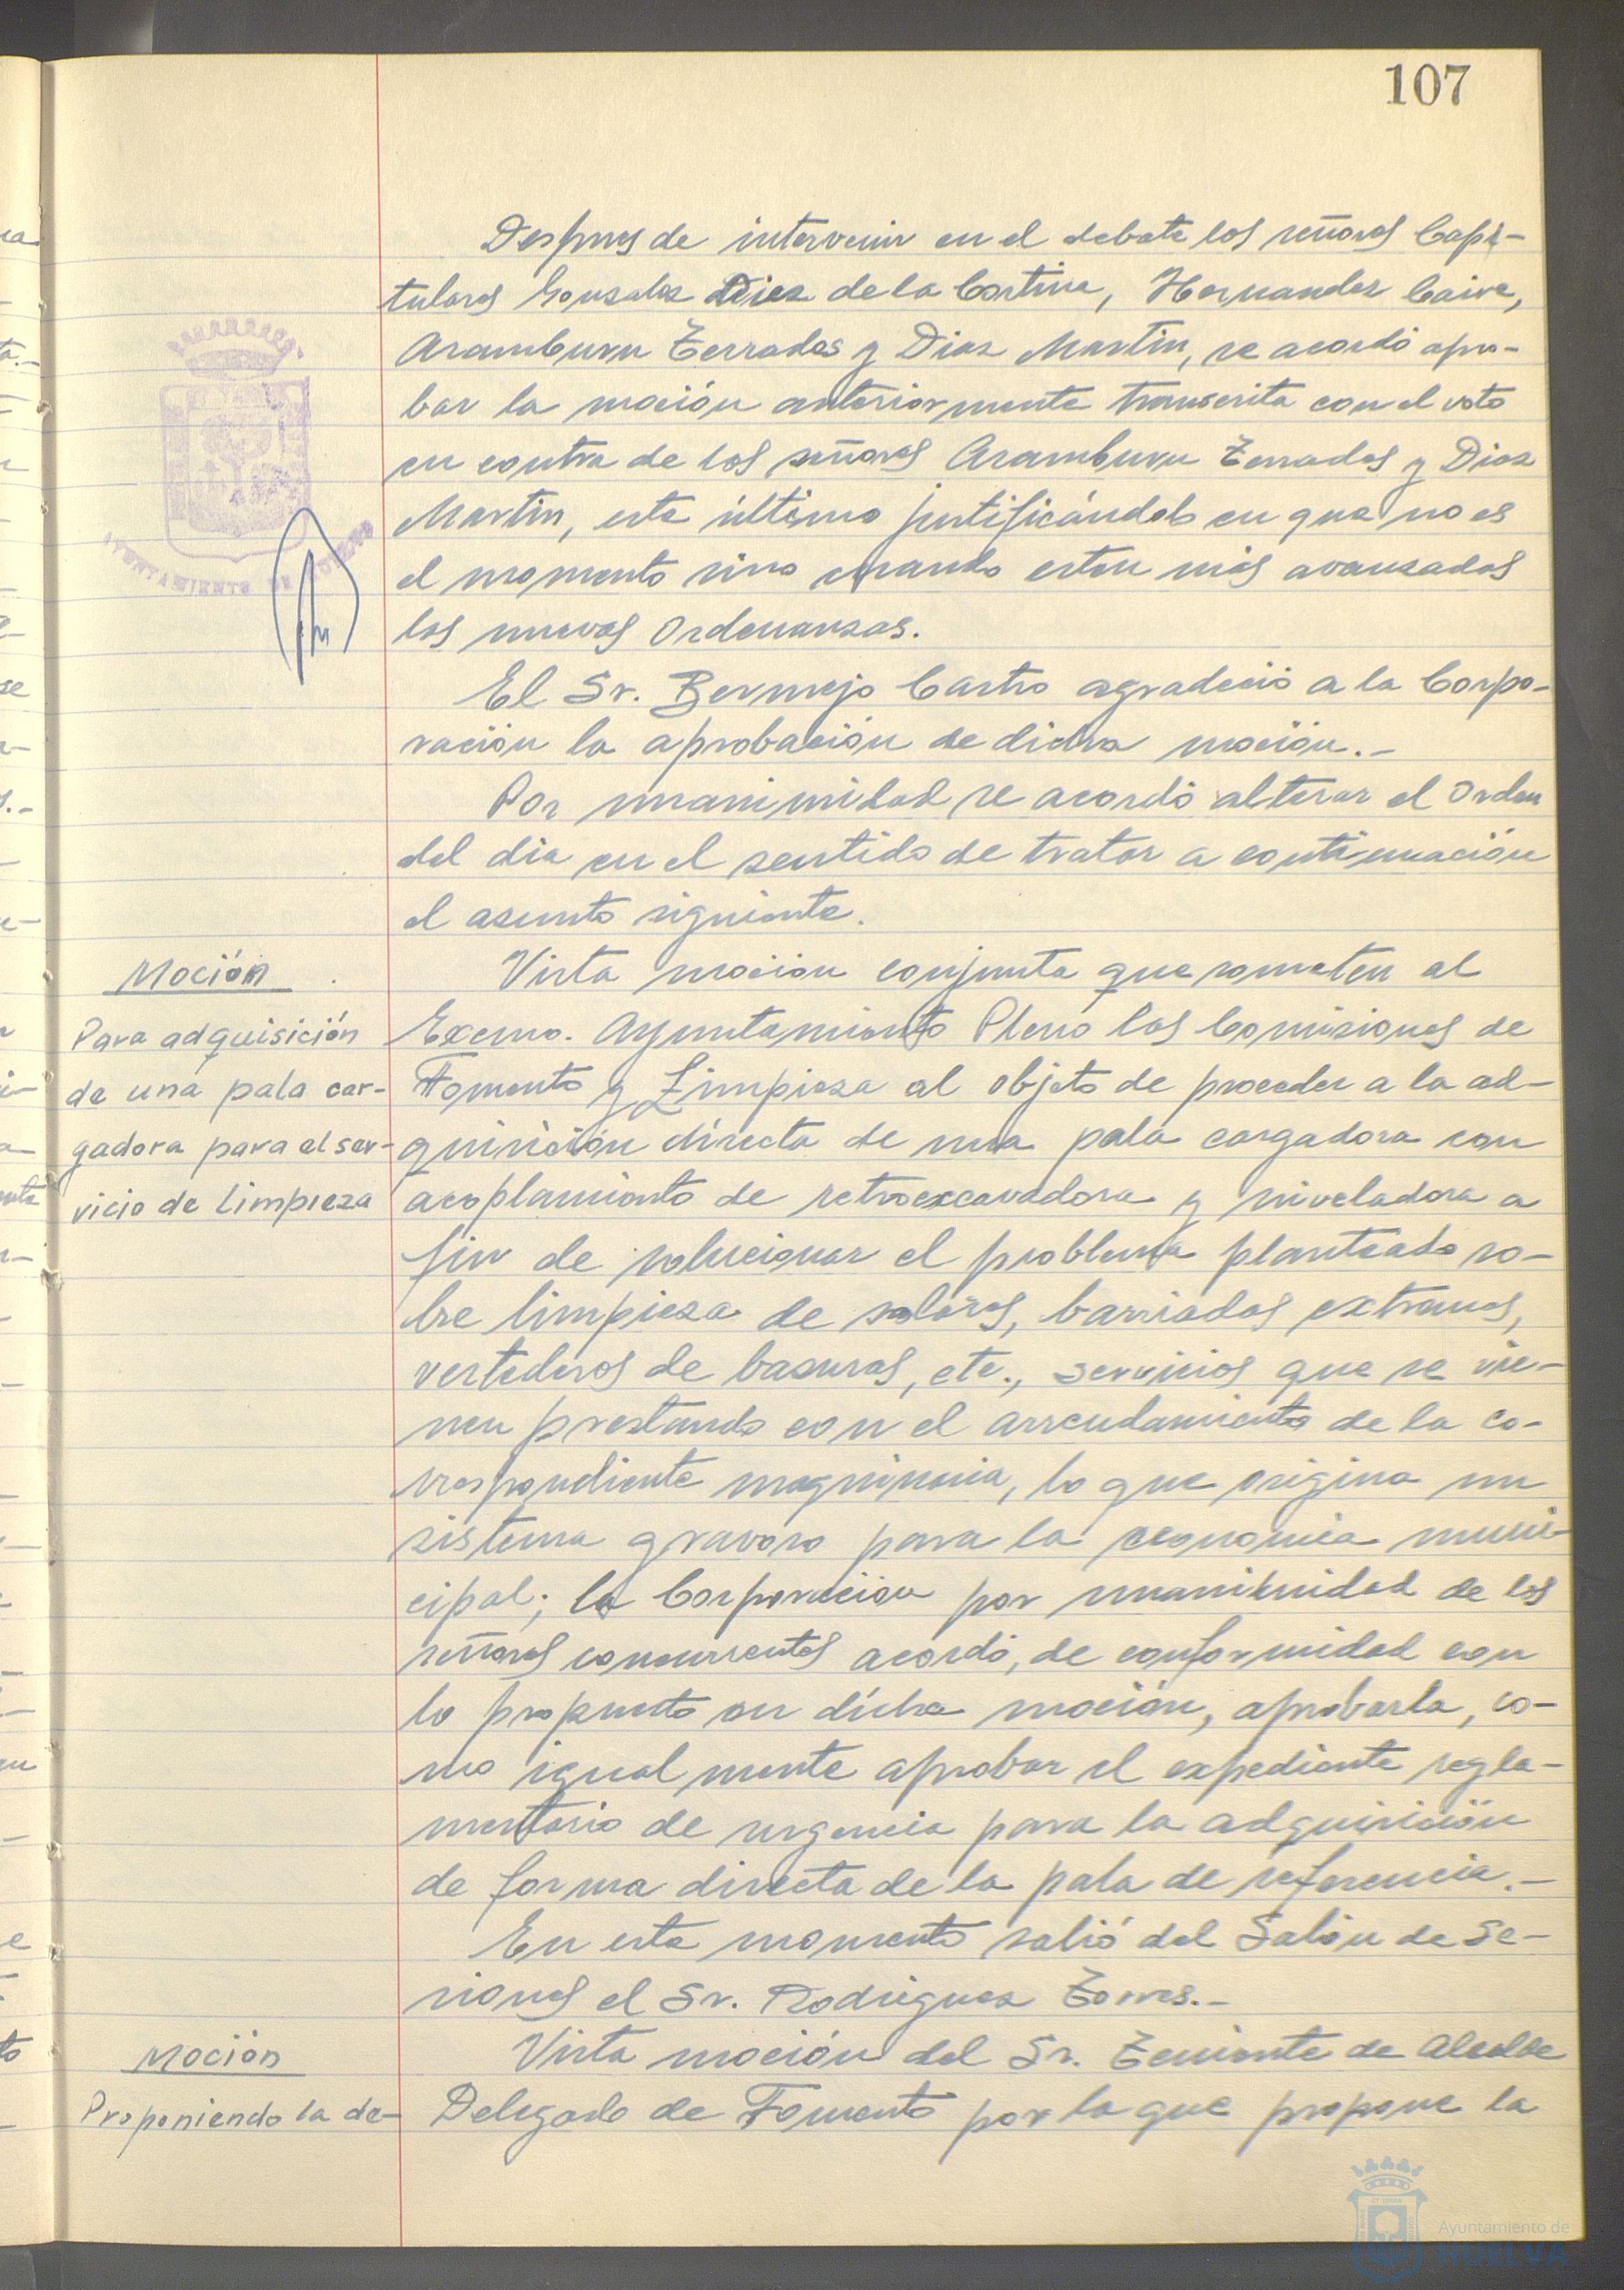 107
Despues de intervenir en el debate los señores Capi-
tulares Gonzalez Diez de la Cortina, Hernandez Caire,
Aramburu Terrades y Diaz Martin, se acordó apro-
bar la moción anteriormente transcrita con el voto
en contra de los señores Aramburu Terrades y Diaz
Martin, este último justificándolo en que no es
el momento sino cuando esten más avanzadas
las nuevas Ordenanzas.
El Sr. Bermejo Castro agradeció a la Corpo-
ración la aprobación de dicha moción.-
Por unanimidad se acordó alterar el Orden
del dia en el sentido de tratar a continuación
el asunto siguiente.
Moción
Para adquisición
de una pala car-
gadora para el ser-
vicio de limpieza
Vista moción conjunta que someten al
Excmo. Ayuntamiento Pleno las Comisiones de
Fomento y Limpieza al objeto de proceder a la ad-
quisición directa de una pala cargadora con
acoplamiento de retroexcavadora y niveladora a
fin de solucionar el problema planteado so-
bre limpieza de solares, barriadas extremas,
vertederos de basuras, etc., servicios que se vie-
nen prestando con el arrendamiento de la co-
rrespondiente maquinaria, lo que origina un
sistema gravoso para la economia muni-
cipal; la Corporación por unanimidad de los
señores concurrentes acordó, de conformidad con
lo propuesto en dicha moción, aprobarla, co-
mo igualmente aprobar el expediente regla-
mentario de urgencia para la adquisición
de forma directa de la pala de referencia.-
En este momento salió del Salón de Se-
siones el Sr. Rodriguez Torres.-
Moción
Proponiendo la de-
Vista moción del Sr. Teniente de Alcalde
Delegado de Fomento por la que propone la
AYUNTAMIENTO DE HUELVA
Ayuntamiento de
HUELVA